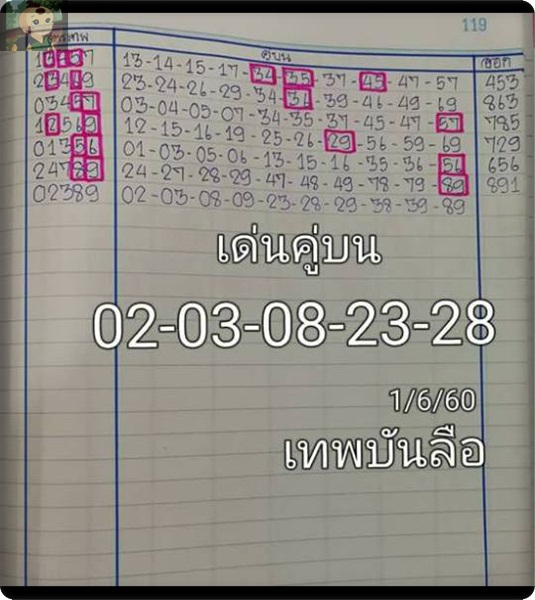 119
คู่บน
ออก
13457 13-14-15-17-34-35-37-45-47-57 453
23469 23-24-26-29-34-36-39-46-49-69 863
03457 03-04-05-07-34-35-37-45-47-57 785
12569 12-15-16-19-25-26-29-56-59-69 729
01356 01-03-05-06-13-15-16-35-36-56 656
24789 24-27-28-29-47-48-49-78-79-89 891
02389 02-03-08-09-23-28-29-38-39-89
เด่นคู่บน
02-03-08-23-28
1/6/60
เทพบันลือ